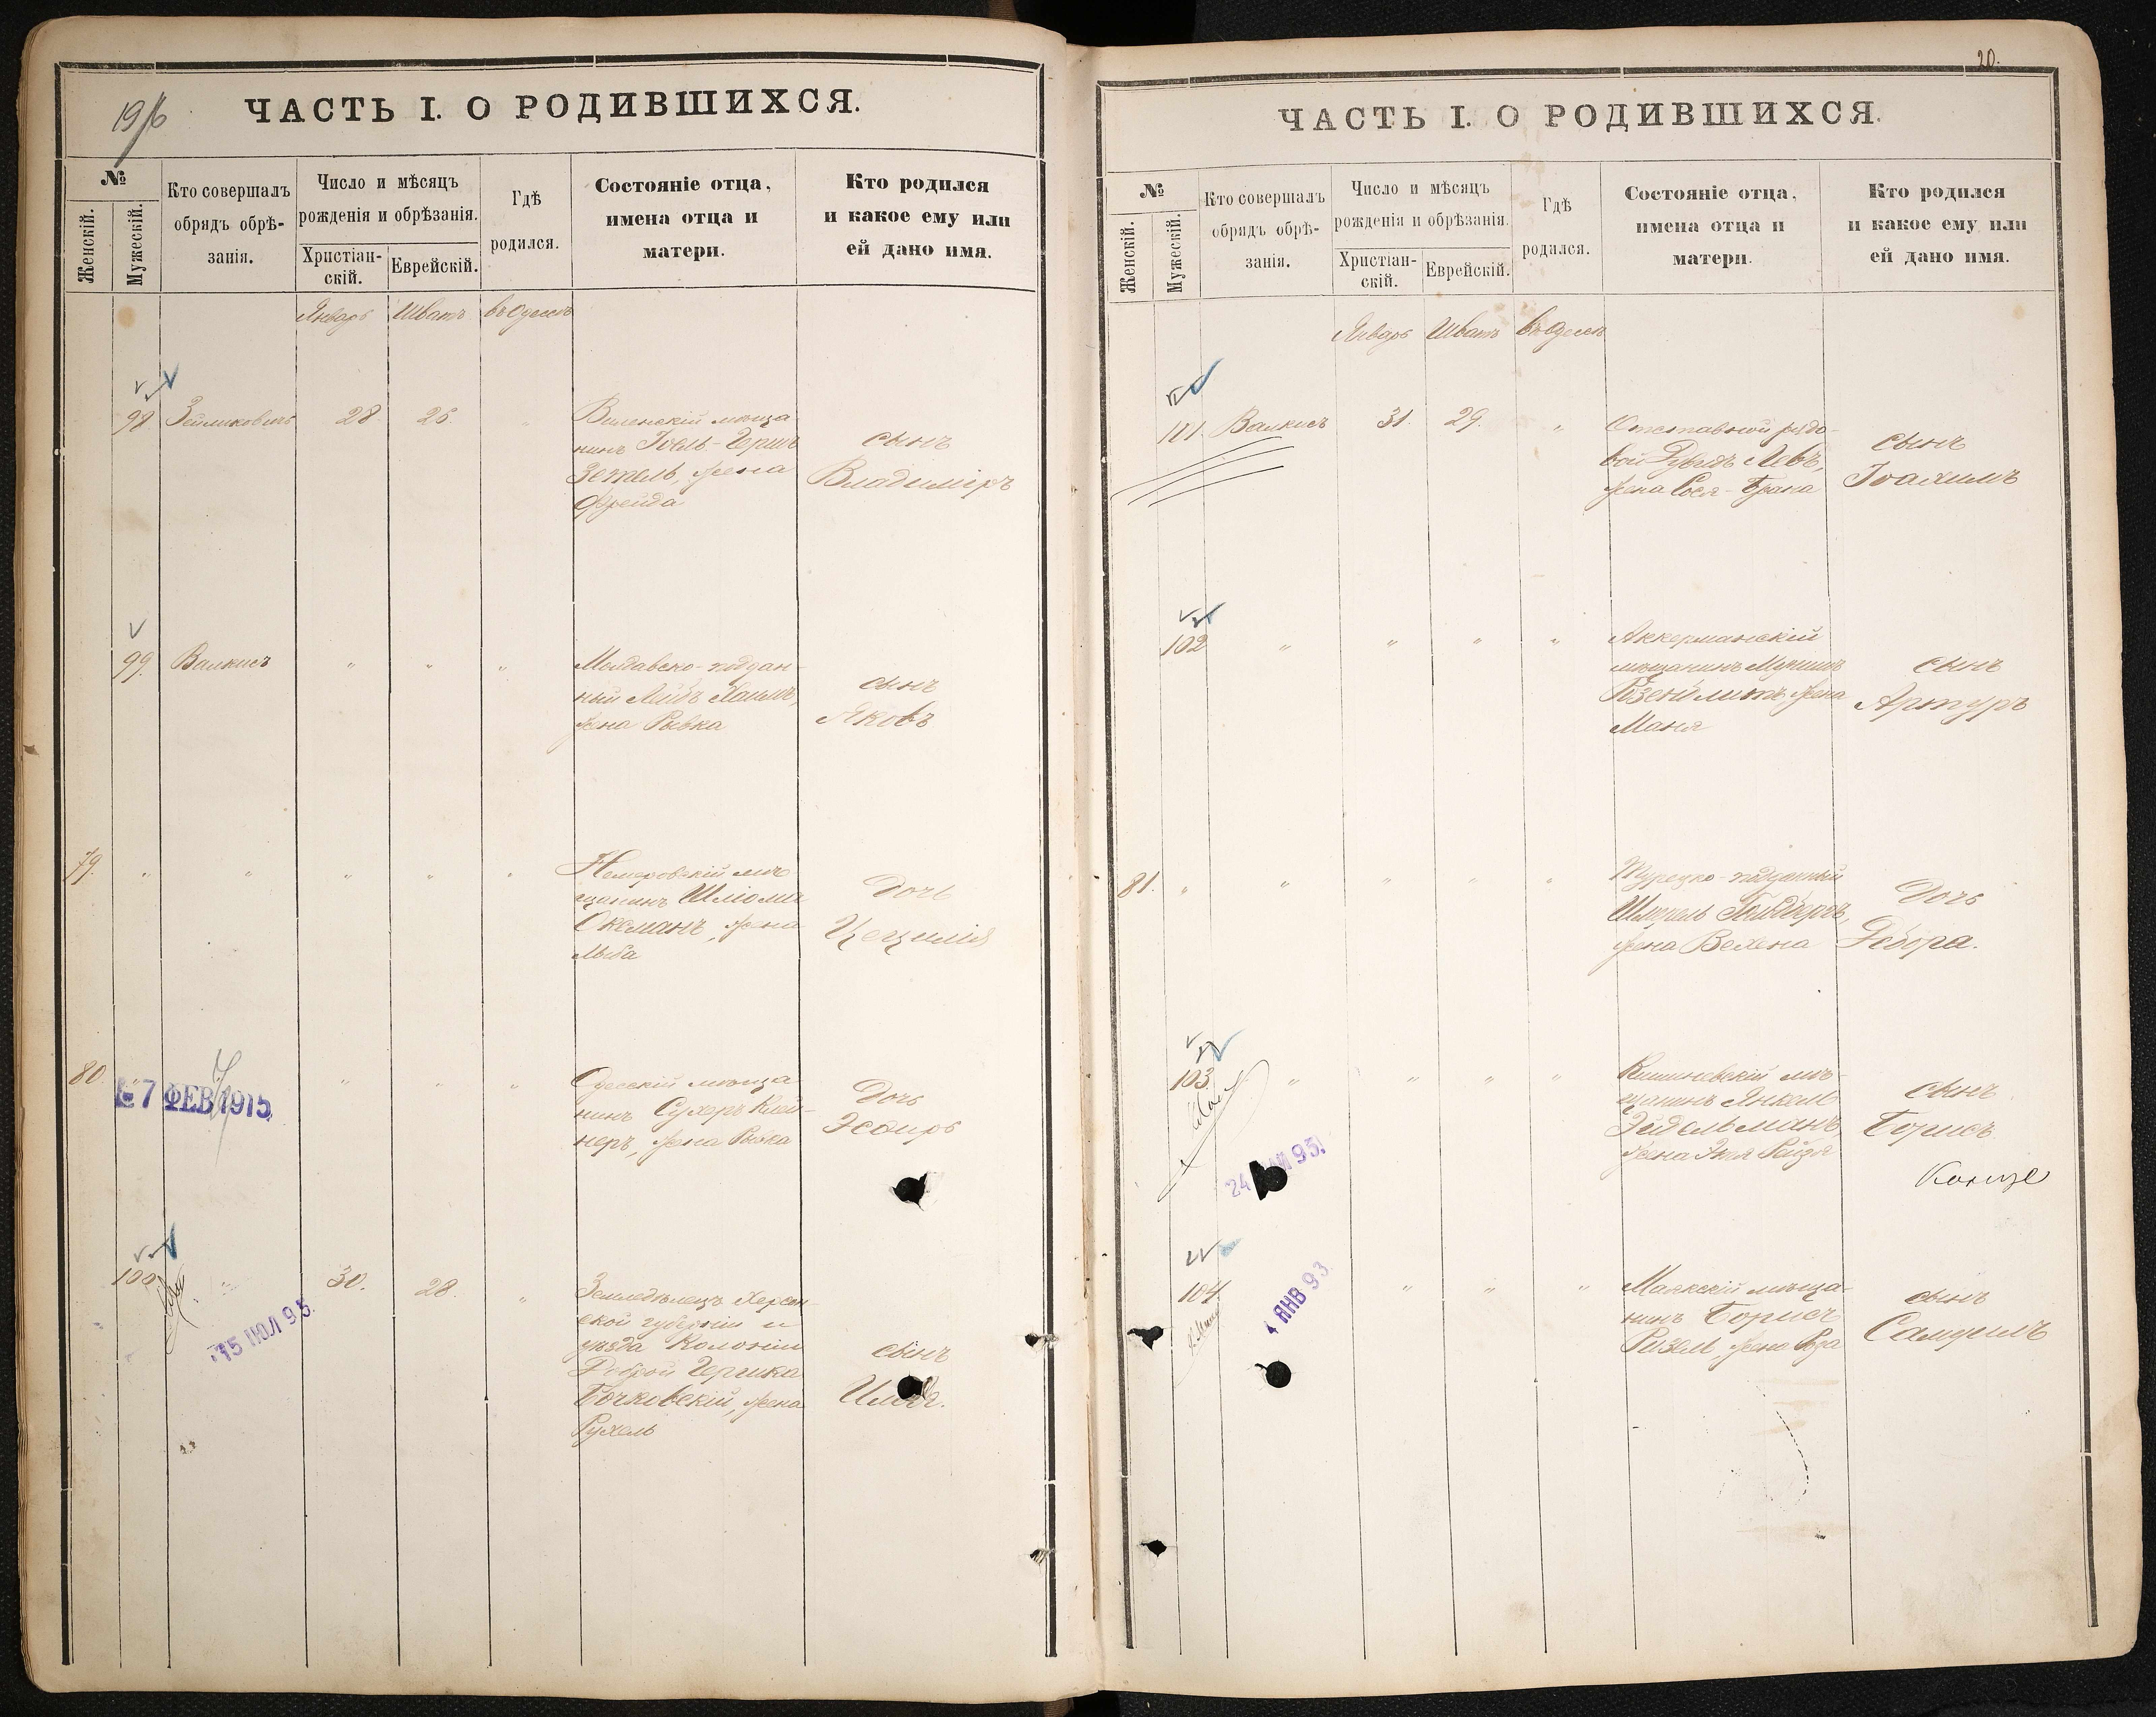 19/6
ЧАСТЬ I. О РОДИВШИХСЯ.
№
Женскій.
Мужескій.
Кто совершалъ
обрядъ обрѣ-
занія.
Число и мѣсяцъ
рожденія и обрѣзанія.
Христіан-
скій.
Еврейскій.
Гдѣ
родился.
Состояніе отца,
имена отца и
матери.
Кто родился
и какое ему или
ей дано имя.
Январь Шватъ въ Одессѣ
98 28 26. "
Виленскій мѣща-
нинъ Іоель-Гершъ
Зетель, жена
Фрейда
сынъ
Владиміръ
99. Валкисъ " " "
Молдавско-поддан-
ный Лейбъ Хаимъ,
жена Рывка
сынъ
Яковъ
79. " " " " "
Немеровскій мѣ-
щанинъ Шліома
Оксманъ, жена
дочь
Цецилія
80. " " "
№ 7 ФЕВ 1915
Одесскій мѣща-
нинъ Сухеръ Клей-
неръ, жена Рывка
дочь
Эсѳирь
100. " 30. 28. "
15 ІЮЛ 95.
Земледѣлецъ Херсон-
ской губерніи и
уѣзда Колоніи
Доброй Гершка
Бочковскій, жена
Рухель
сынъ
20.
ЧАСТЬ I. О РОДИВШИХСЯ.
№
Женскій.
Мужескій.
Кто совершалъ
обрядъ обрѣ-
занія.
Число и мѣсяцъ
рожденія и обрѣзанія.
Христіан-
скій.
Еврейскій.
Гдѣ
родился.
Состояніе отца,
имена отца и
матери.
Кто родился
и какое ему или
ей дано имя.
Январь Шватъ въ Одессѣ
101. Валкисъ 31. 29. "
Отставной рядо-
вой Дувидъ Левъ,
жена Бранa
сынъ
Іоахимъ
102 " " " "
Аккерманскій
мѣщанинъ
жена
Маня
сынъ
Артуръ
81. " " " " "
Турецко-подданный
Шмуель
жена
дочь
Дебора.
103. " " " "
24 95.
Кишиневскій мѣ-
щанинъ Янкель
Эйдельманъ,
жена Рейзя
сынъ
Борисъ
104. " " "
4 ЯНВ 93
Маякскій мѣща-
нинъ Борисъ
жена Роза
сынъ
Самуилъ